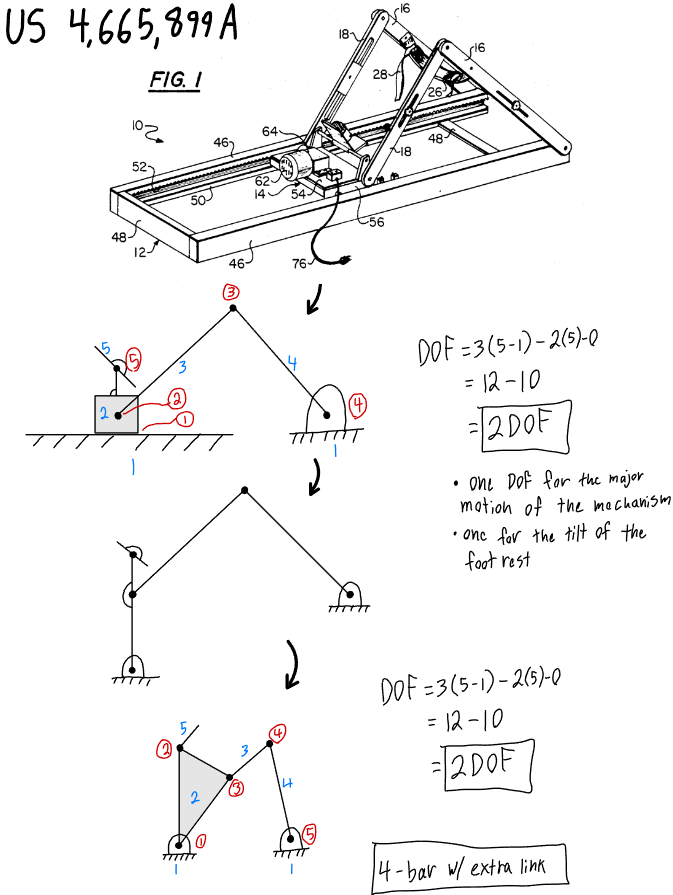 US 4,665,899A
FIG. 1
16
18
16
28
26
10
46
64
48
52
18
50
62
14
54
56
48
12
46
76
③
5
⑤
3
4
2
②
①
④
1
1
DOF = 3(5-1) - 2(5) - 0
= 12 - 10
= 2DOF
• one DOF for the major
motion of the mechanism
• one for the tilt of the
foot rest
5
②
④
3
③
4
2
①
⑤
1
1
DOF = 3(5-1) - 2(5) - 0
= 12 - 10
= 2DOF
4-bar w/ extra link